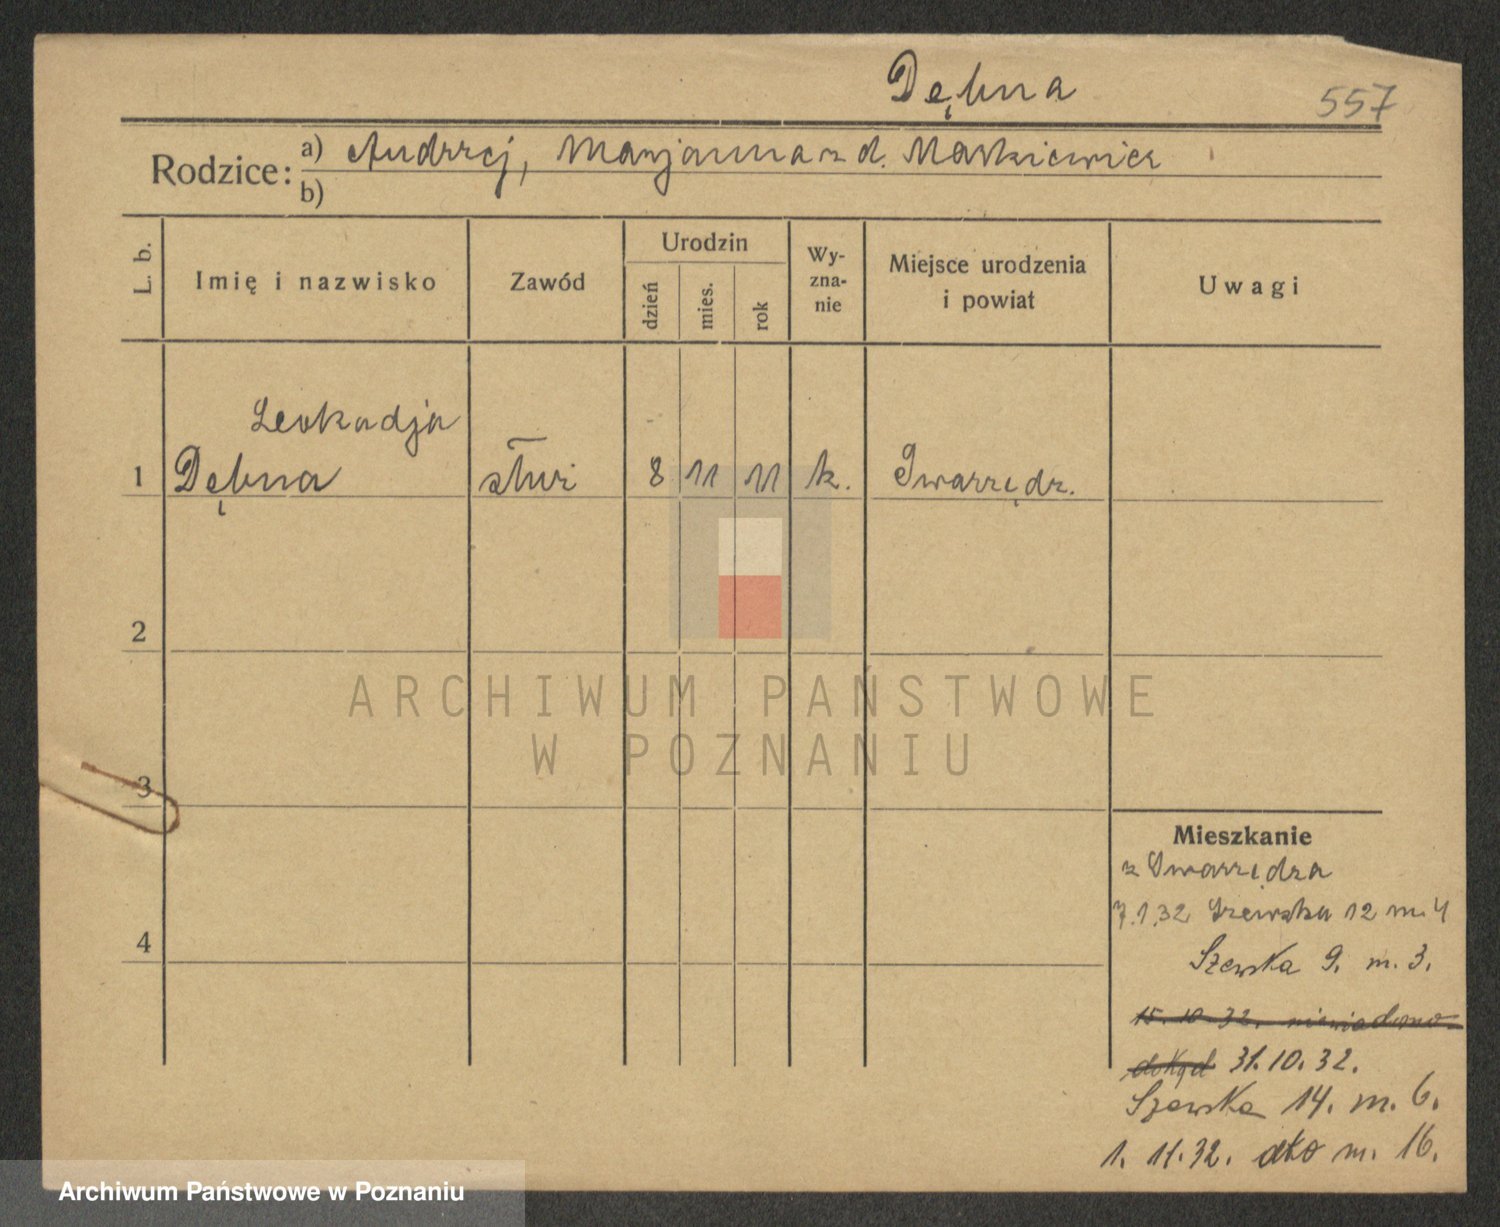 Dębna
557
Rodzice: a) Andrzej, Marjanna z d. Maśkiewicz
b)
L. b. Imię i nazwisko Zawód Urodzin dzień mies. rok Wy-zna-nie Miejsce urodzenia i powiat Uwagi
Leokadja
1 Dębna służ 8 11 11 k. Swarzędz.
2
ARCHIWUM PAŃSTWOWE
W POZNANIU
3
Mieszkanie
z Swarzędza
7.1.32 Szewska 12 m. 4
4
Szewska 9. m. 3.
15. 10. 32. niewiadomo
dokąd 31. 10. 32.
Szewska 14. m. 6.
1. 11. 32. dto m. 16.
Archiwum Państwowe w Poznaniu